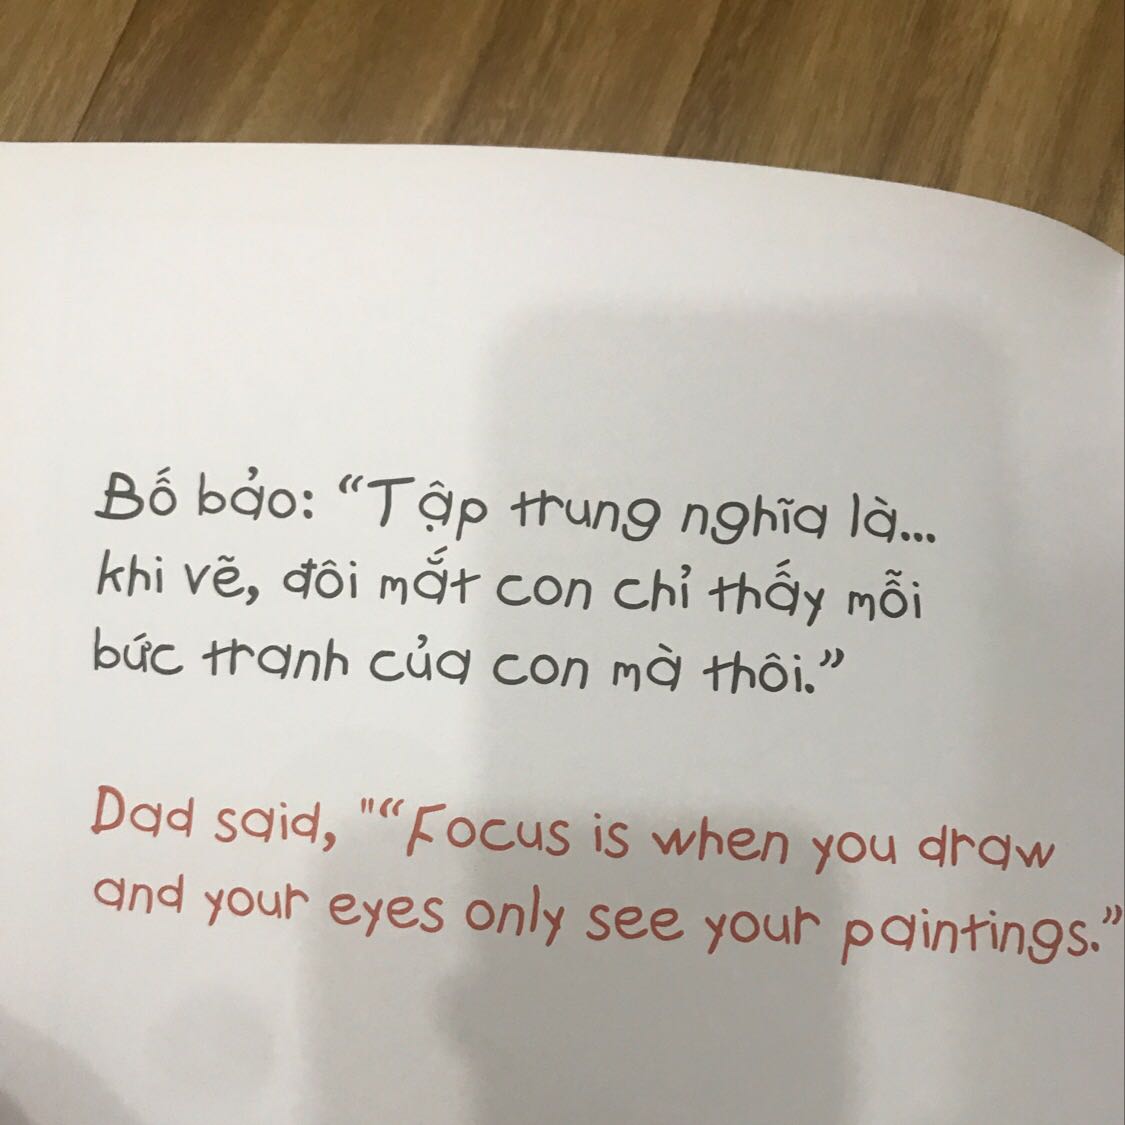 Bố bảo: “Tập trung nghĩa là...
khi vẽ, đôi mắt con chỉ thấy mỗi
bức tranh của con mà thôi.”
Dad said, "“Focus is when you draw
and your eyes only see your paintings.”